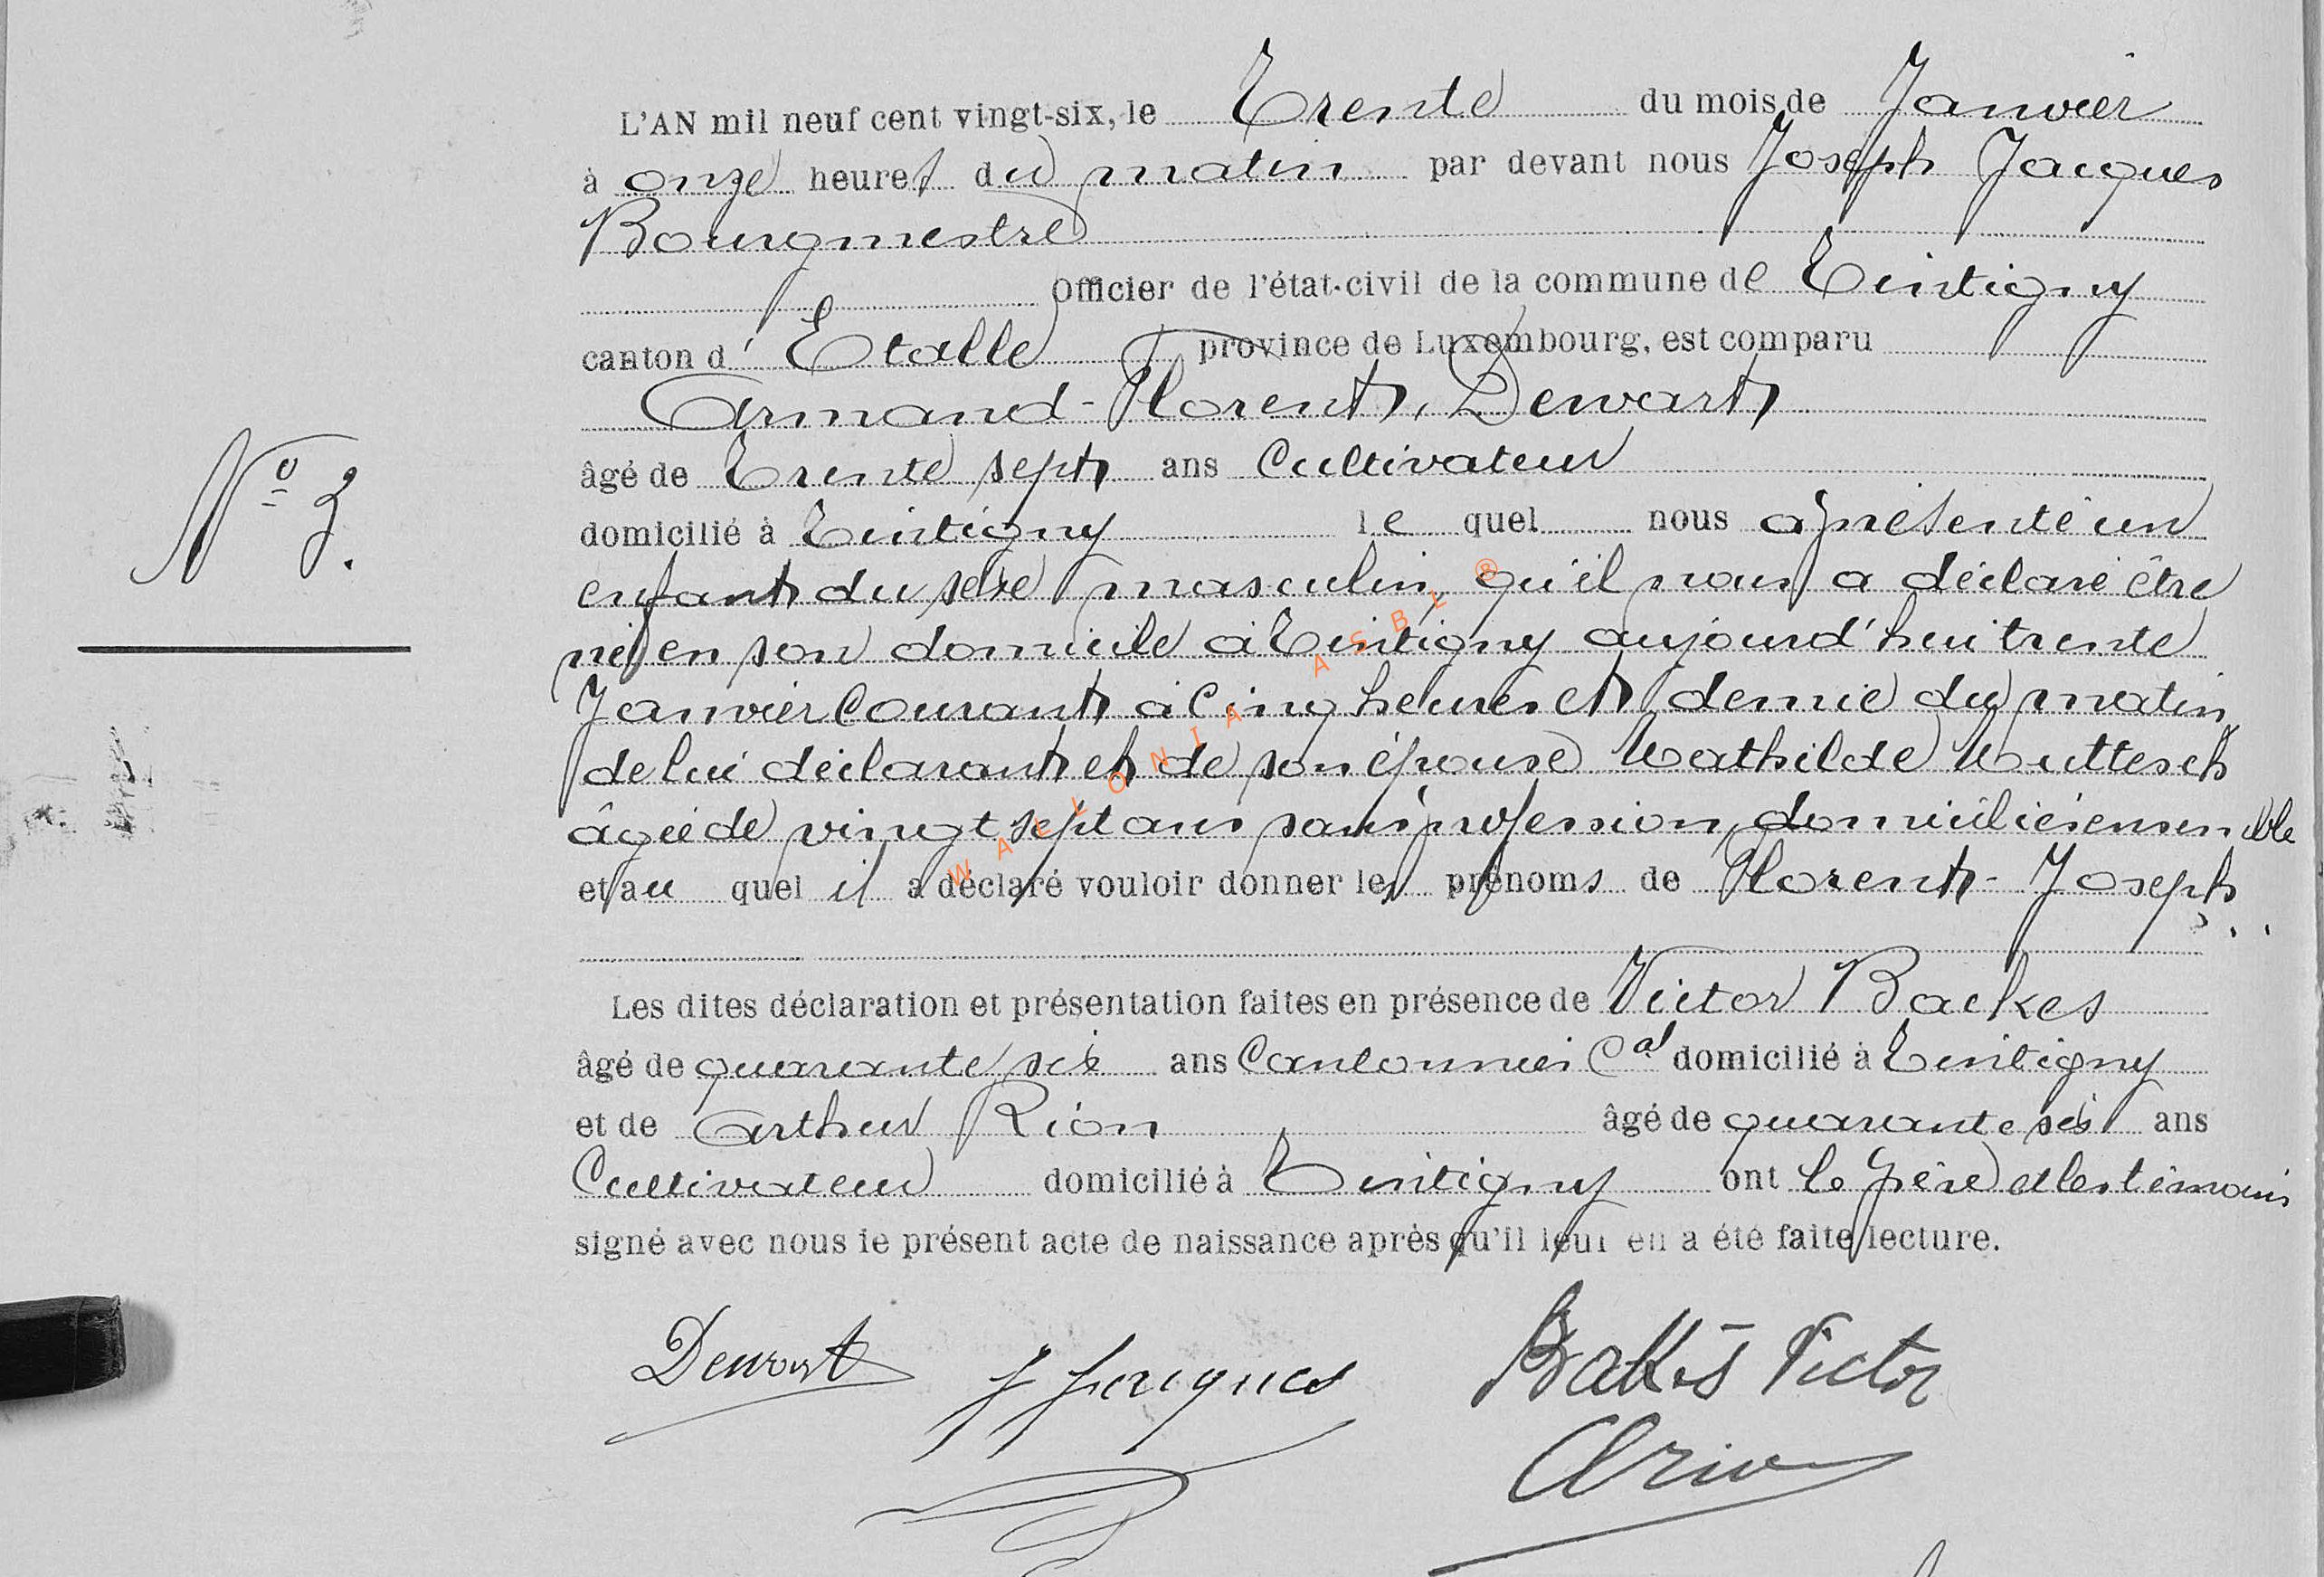 L'AN mil neuf cent vingt-six, le Trente du mois de Janvier
à onze heures du matin par devant nous Joseph Jacques
Bourgmestre
Officier de l'état-civil de la commune de Tintigny
canton d' Etalle province de Luxembourg, est comparu
Armand-Florent, Dewart
âgé de Trente sept ans Cultivateur
domicilié à Tintigny le quel nous a présenté un
N° 3.
enfant du sexe masculin qu'il nous a déclaré être
né en son domicile à Tintigny aujourd'hui trente
Janvier Courant à Cinq heures et demie du matin
de lui déclarant et de son épouse Mathilde Muttesch
âgée de vingt sept ans sans profession, domiciliés ensemble
et au quel il a déclaré vouloir donner les prénoms de Florent-Joseph
Les dites déclaration et présentation faites en présence de Victor Backes
âgé de quarante six ans Cantonnier Cal domicilié à Tintigny
et de Arthur Rion âgé de quarante six ans
Cultivateur domicilié à Tintigny ont le père et les témoins
signé avec nous le présent acte de naissance après qu'il leur en a été faite lecture.
Dewart J Jacques Bakkes Victor
A Rion
WALLONIA ASBL ®